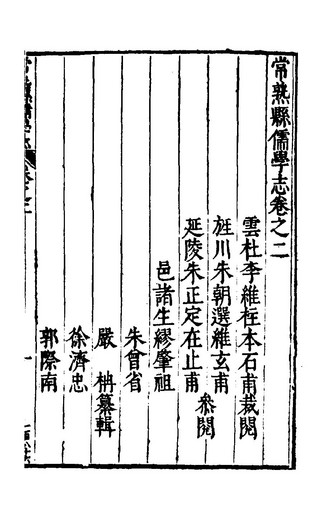 常熟縣儒學志卷之二
雲杜李維柱本石甫裁閱
旌川朱朝選維玄甫
延陵朱正定在止甫
叅閱
邑諸生繆肇祖
朱曾省
嚴栴纂輯
徐濟忠
郭際南
一